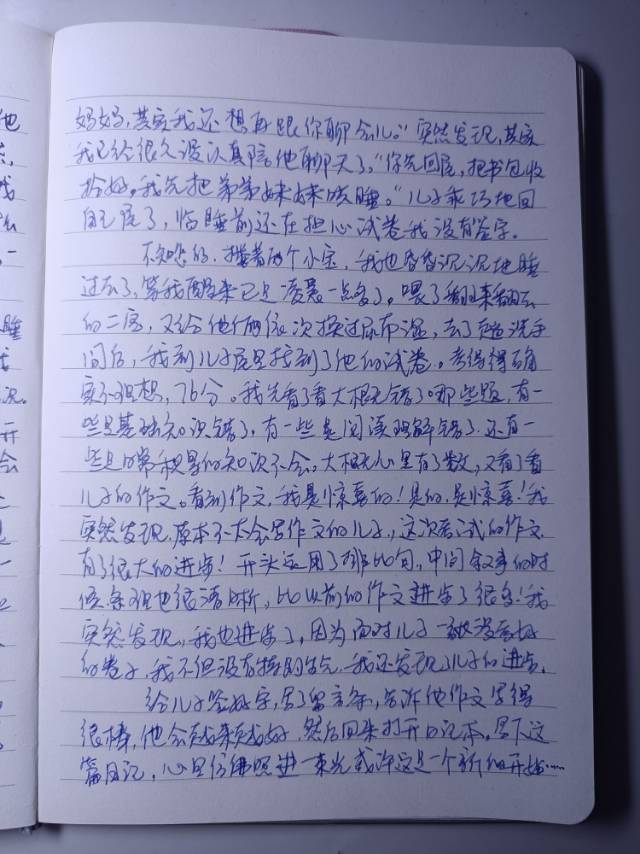 他
我
一
睡
我
况。
开
会
妈妈,其实我还想再跟你聊会儿。"突然发现,其实
我已经很久没认真陪他聊天了。"你先回屋,把书包收
拾好。我先把弟弟妹妹哄睡。"儿子乖巧地回
自己屋了,临睡前还在担心试卷我没有签字。
不知怎的,搂着两个小宝,我也昏昏沉沉地睡
过去了,等我醒来已是凌晨一点多了。喂了翻来翻去
的二宝,又给他们俩依次换过尿布湿,去了趟洗手
间后,我到儿子屋里找到了他的试卷。考得得确
实不理想,76分。我先看了看大概错了哪些题,有一
些是基础知识错了,有一些是阅读理解错了,还有一
些是日常积累的知识不会。大概心里有了数,又看了看
儿子的作文。看到作文,我是惊喜的!是的,是惊喜!我
突然发现,原本不太会写作文的儿子,这次考试的作文
有了很大的进步!开头运用了排比句,中间叙事的时
候条理也很清晰,比以前的作文进步了很多!我
突然发现,我也进步了,因为面对儿子一张没考好
的卷子,我不但没有特别生气,我还发现了儿子的进步。
给儿子签好字,写了留言条,告诉他作文写得
很棒,他会越来越好,然后回来打开日记本,写下这
篇日记,心里仿佛照进一束光,或许这是一个新的开始……